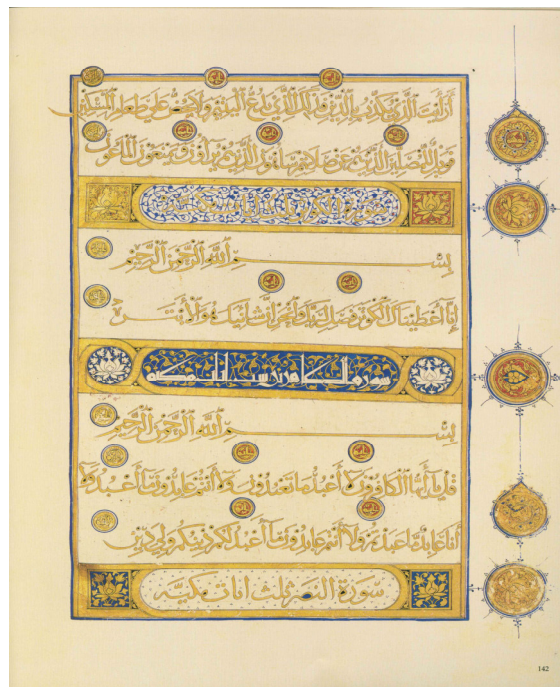 أرأيت الذي يكذب بالدين فذلك الذي يدع اليتيم ولا يحض على طعام المسكين
فويل للمصلين الذين هم عن صلاتهم ساهون الذين هم يراؤن ويمنعون الماعون
سورة الكوثر ثلث ايات مكية
بسم الله الرحمن الرحيم
إنا أعطيناك الكوثر فصل لربك وانحر إن شانئك هو الأبتر
سورة الكافرون ست ايات مكية
بسم الله الرحمن الرحيم
قل يا أيها الكافرون لا أعبد ما تعبدون ولا أنتم عابدون ما أعبد ولا
أنا عابد ما عبدتم ولا أنتم عابدون ما أعبد لكم دينكم ولي دين
سورة النصر ثلث ايات مكية
142